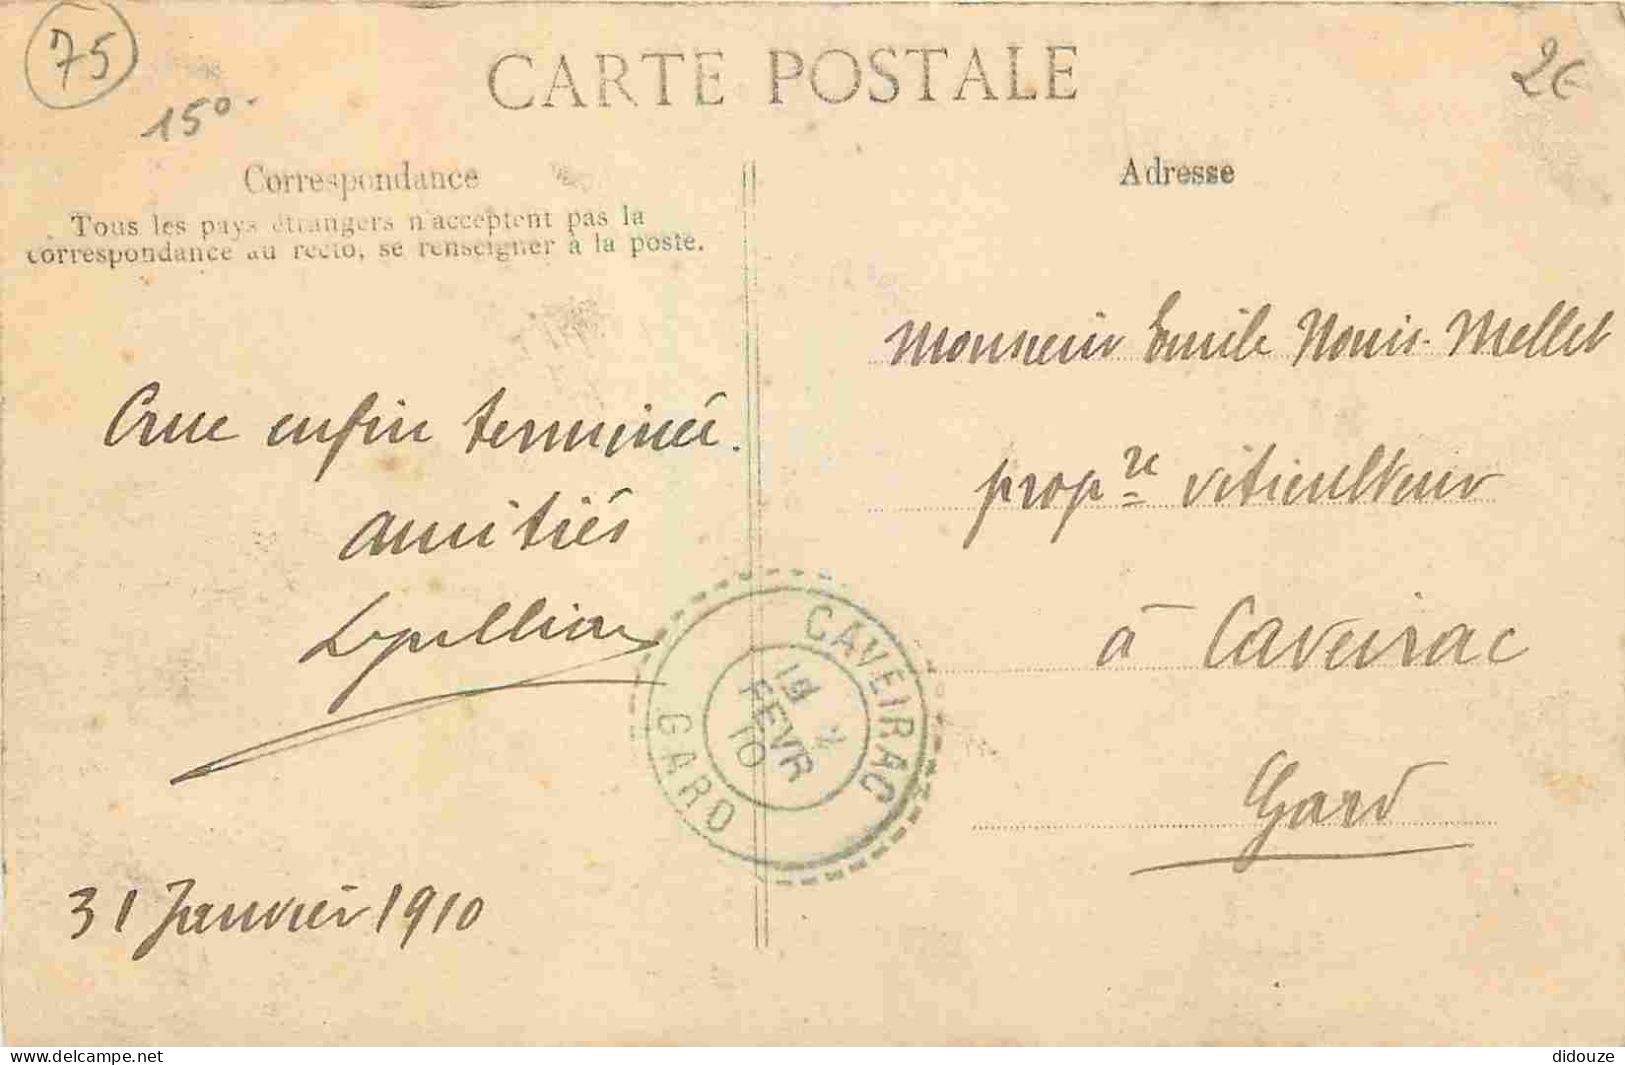 75
15°.
2€
CARTE POSTALE
Correspondance
Tous les pays étrangers n'acceptent pas la
correspondance au recto, se renseigner à la poste.
Crue enfin terminée.
amitiés
31 Janvier 1910
Adresse
Monsieur Emile Nouis-Mellet
propre viticulteur
à Caveirac
Gard
CAVEIRAC
2
FEVR
10
GARD
www.delcampe.net
didouze